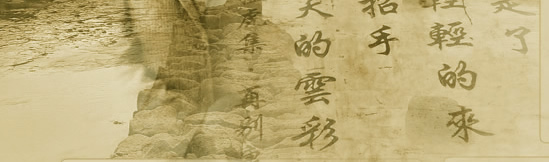 走了
輕輕的來
招手
天的雲彩
集 再别